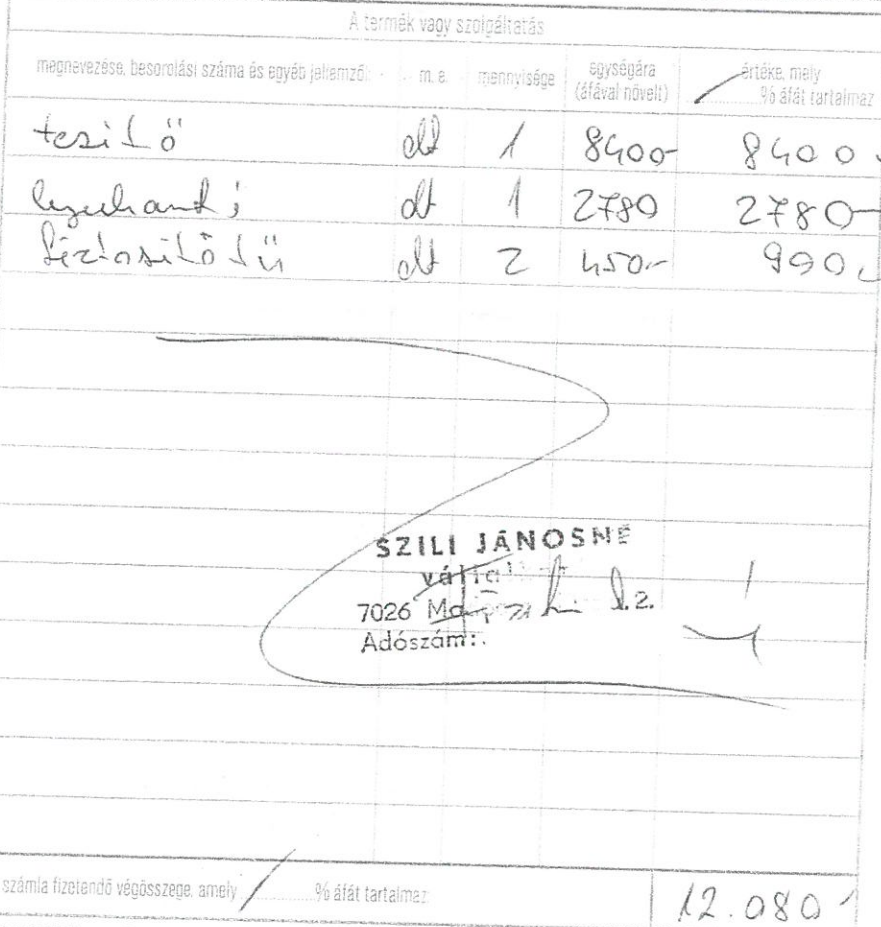 A termék vagy szolgáltatás
megnevezése, besorolási száma és egyéb jellemzői m. e. mennyisége egységára (áfával növelt) értéke, mely % áfát tartalmaz
terítő db 1 8400- 8400.
db 1 2780 2780-
biztosítótű db 2 450.- 900.
SZILI JÁNOSNÉ
7026
Adószám:
számla fizetendő végösszege, amely % áfát tartalmaz: 12.080